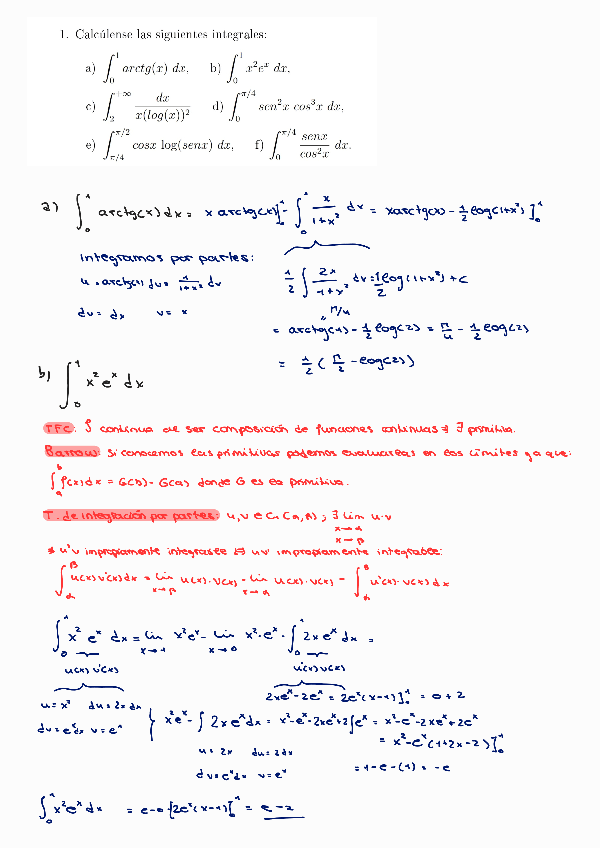 1. Calcúlense las siguientes integrales:
a) ∫_0^1 arctg(x) dx, b) ∫_0^1 x²eˣ dx,
c) ∫_2^{+∞} dx / x(log(x))² d) ∫_0^{π/4} sen²x cos³x dx,
e) ∫_{π/4}^{π/2} cosx log(senx) dx, f) ∫_0^{π/4} senx / cos²x dx.
a) ∫_0^1 arctg(x) dx = x arctg(x)]- ∫_0^1 x/(1+x²) dx = xarctg(x) - 1/2 log(1+x²)]_0^1
integramos por partes:
u = arctg(x) du = 1/(1+x²) dx
1/2 ∫ 2x/(1+x²) dx = 1/2 log(1+x²) + c
dv = dx v = x
π/4
= arctg(1) - 1/2 log(2) = π/4 - 1/2 log(2)
= 1/2 (π/2 - log(2))
b) ∫_0^1 x² eˣ dx
TFC: f continua al ser composición de funciones continuas ⇒ ∃ primitiva.
Barrow: si conocemos las primitivas podemos evaluarlas en los límites ya que:
∫_a^b f(x)dx = G(b) - G(a) donde G es la primitiva.
T. de integración por partes: u,v ∈ C¹(α,β) ; ∃ lim u·v
x→α
x→β
u'v impropiamente integrable ⇔ uv' impropiamente integrable:
∫_α^β u(x)v'(x)dx = lim_{x→β} u(x)·v(x) - lim_{x→α} u(x)·v(x) - ∫_α^β u'(x)·v(x)dx
∫_0^1 x² eˣ dx = lim_{x→1} x²eˣ - lim_{x→0} x²·eˣ - ∫_0^1 2x eˣ dx =
u(x) v'(x) u'(x) v(x)
2xeˣ - 2eˣ = 2eˣ(x-1)]_0^1 = 0 + 2
u = x² du = 2x dx
dv = eˣdx v = eˣ
x²eˣ - ∫ 2x eˣ dx = x²·eˣ - 2xeˣ + 2∫eˣ = x²·eˣ - 2xeˣ + 2eˣ
u = 2x du = 2dx
= x² - eˣ(1+2x-2)]_0^1
dv = eˣdx v = eˣ
= 1 - e - (1) = -e
∫_0^1 x²eˣ dx = e - 0 - [2eˣ(x-1)]_0^1 = e - 2